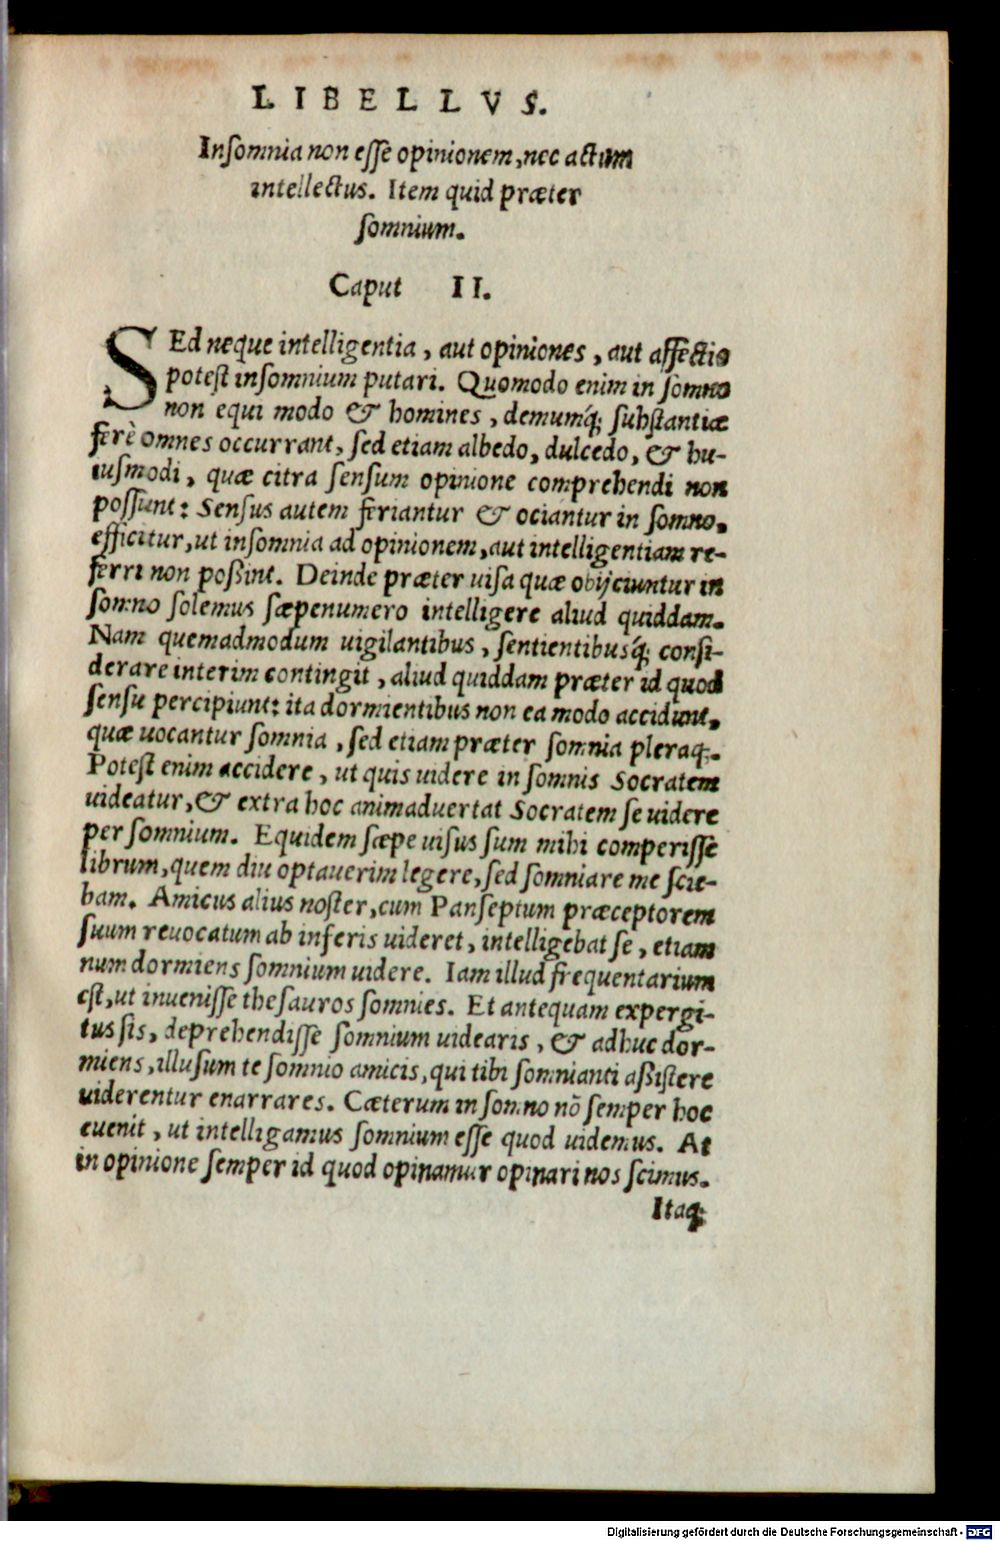 LIBELLVS.
Inſomnia non eſſe opinionem, nec actum
intellectus. Item quid præter
ſomnium.
Caput II.
SEd neque intelligentia, aut opiniones, aut affectio
poteſt inſomnium putari. Quomodo enim in ſomno
non equi modo & homines, demumq́; ſubſtantiæ
ferè omnes occurrant, ſed etiam albedo, dulcedo, & hu-
iuſmodi, quæ citra ſenſum opinione comprehendi non
poſſunt: Senſus autem feriantur & ociantur in ſomno,
efficitur, ut inſomnia ad opinionem, aut intelligentiam re-
ferri non poßint. Deinde præter uiſa quæ obijciuntur in
ſomno ſolemus ſæpenumero intelligere aliud quiddam.
Nam quemadmodum uigilantibus, ſentientibusq́; conſi-
derare interim contingit, aliud quiddam præter id quod
ſenſu percipiunt: ita dormientibus non ea modo accidunt,
quæ uocantur ſomnia, ſed etiam præter ſomnia pleraq;.
Poteſt enim accidere, ut quis uidere in ſomnis Socratem
uideatur, & extra hoc animaduertat Socratem ſe uidere
per ſomnium. Equidem ſæpe uiſus ſum mihi comperiſſe
librum, quem diu optauerim legere, ſed ſomniare me ſcie-
bam. Amicus alius noſter, cum Panſeptum præceptorem
ſuum reuocatum ab inferis uideret, intelligebat ſe, etiam
num dormiens ſomnium uidere. Iam illud frequentarium
eſt, ut inueniſſe theſauros ſomnies. Et antequam expergi-
tus ſis, deprehendiſſe ſomnium uidearis, & adhuc dor-
miens, illuſum te ſomnio amicis, qui tibi ſomnianti aßiſtere
uiderentur enarrares. Cæterum in ſomno nõ ſemper hoc
euenit, ut intelligamus ſomnium eſſe quod uidemus. At
in opinione ſemper id quod opinamur opinari nos ſcimus.
Itaq;
Digitalisierung gefördert durch die Deutsche Forschungsgemeinschaft - DFG